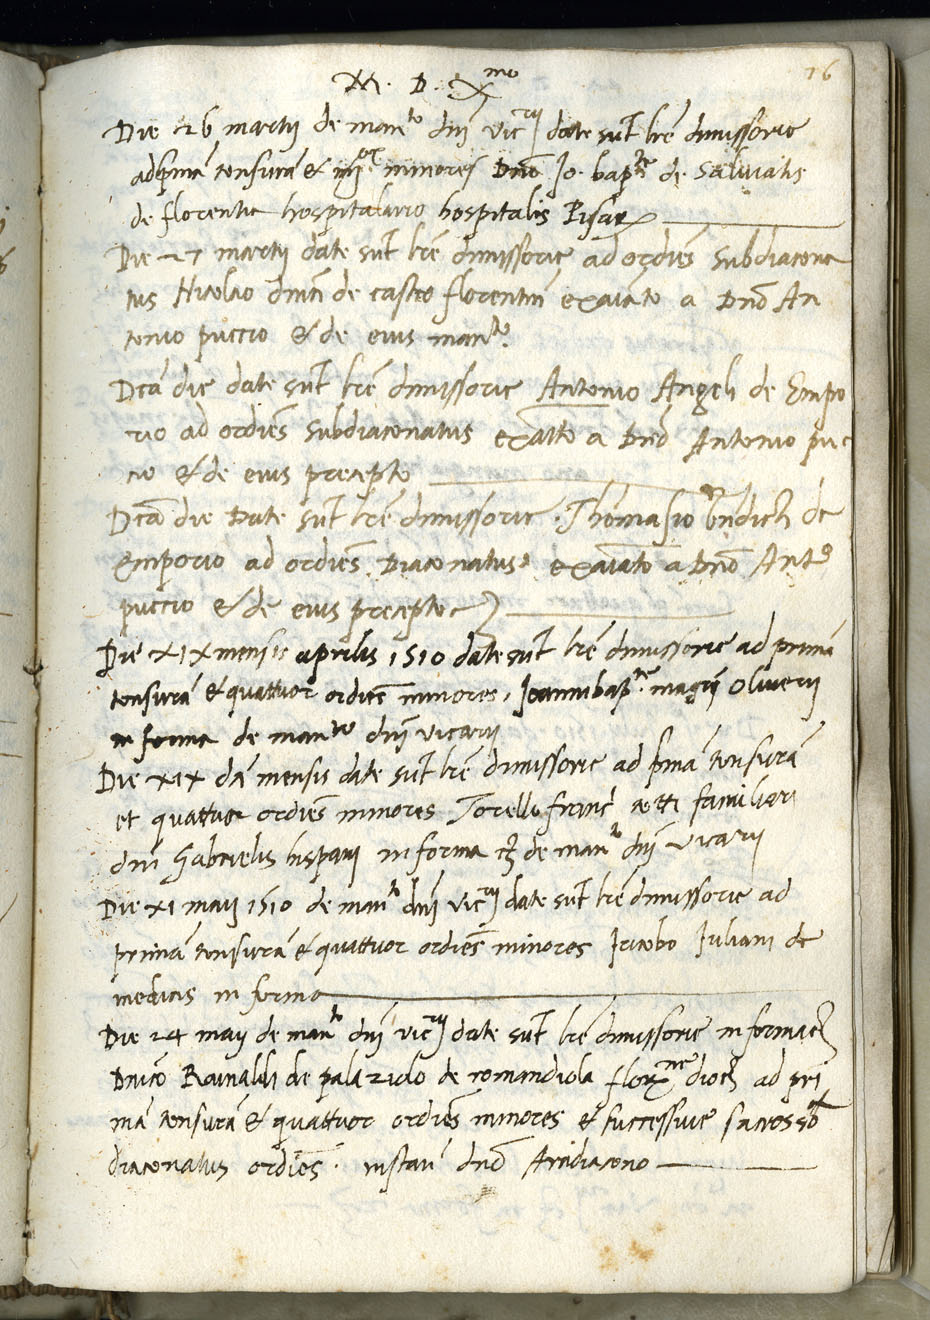 16
M. D. Xmo
Die 26 martij de manto dnj vicrij date sut lre dimissorie
ad primā tonsurā & iiijor minores Dno Jo. bapte de Salviatis
de florentia hospitalario hospitalis Pisar
Die 27 martij date sut lre dimissorie ad ordies Subdiacona
tus Nicolao dnici de castro florentin exaiato a Dno An
tonio puccio & de eius manto
Dca die date sut lre dimissorie Antonio Angeli de Empo
rio ad ordies Subdiaconatus exaiato a Dno Antonio puc
cio & de eius precepto
Dca die Date sut lre dimissorie Thomasio bndicti de
Emporio ad ordies Diaconatus exaiato a Dno Anto
puccio & de eius precepto
Die xix mensis aprilis 1510 date sut lre dimissorie ad primā
tonsurā & quattuor ordies minores Joannibapte magri Oliverij
in forma de manto dnj vicarij
Die xix dci mensis date sut lre dimissorie ad primā tonsurā
et quattuor ordies minores Torello franci familiari
dni Gabrielis hispani in forma de manto dnj vicarij
Die xi maij 1510 de manto dnj vicrij date sut lre dimissorie ad
primā tonsurā & quattuor ordies minores Jacobo Juliani de
medicis in forma
Die 24 maij de manto dnj vicrij date sut lre dimissorie in forma
Dnico Rainaldi de palazuolo de romandiola flor dioc ad pri
mā tonsurā & quattuor ordies minores & successive sacros sb
diaconatus ordies. instan dno Archidiacono